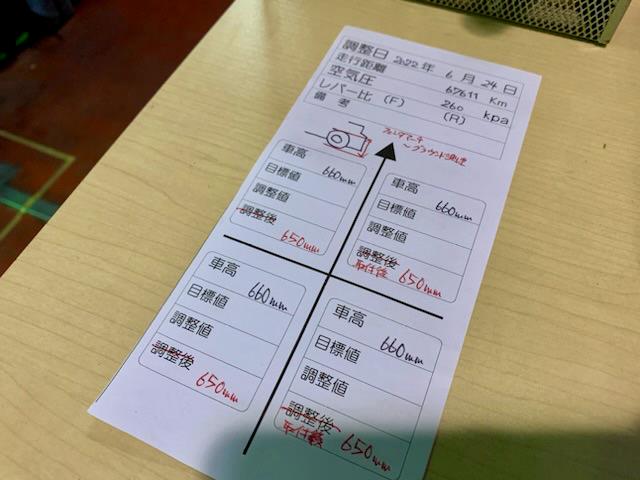 調整日 2022年 6月 24日
走行距離 67611 Km
空気圧 260 kpa
レバー比 (F) (R)
備考
フェンダーアーチ
～グラウンド測定
車高 660mm
目標値
調整値
調整後 650mm
車高 660mm
目標値
調整値
調整後
取付後 650mm
車高 660mm
目標値
調整値
調整後 650mm
車高 660mm
目標値
調整値
調整後
取付後 650mm